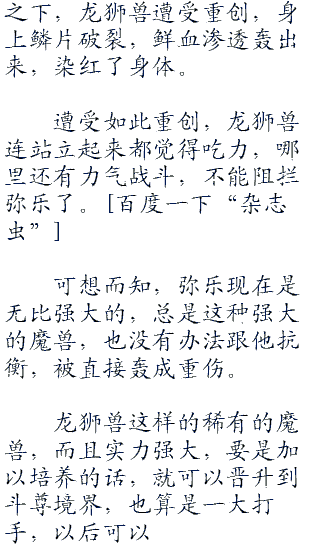 之下，龙狮兽遭受重创，身
上鳞片破裂，鲜血渗透轰出
来，染红了身体。
遭受如此重创，龙狮兽
连站立起来都觉得吃力，哪
里还有力气战斗，不能阻拦
弥乐了。[百度一下“杂志
虫”]
可想而知，弥乐现在是
无比强大的，总是这种强大
的魔兽，也没有办法跟他抗
衡，被直接轰成重伤。
龙狮兽这样的稀有的魔
兽，而且实力强大，要是加
以培养的话，就可以晋升到
斗尊境界，也算是一大打
手，以后可以